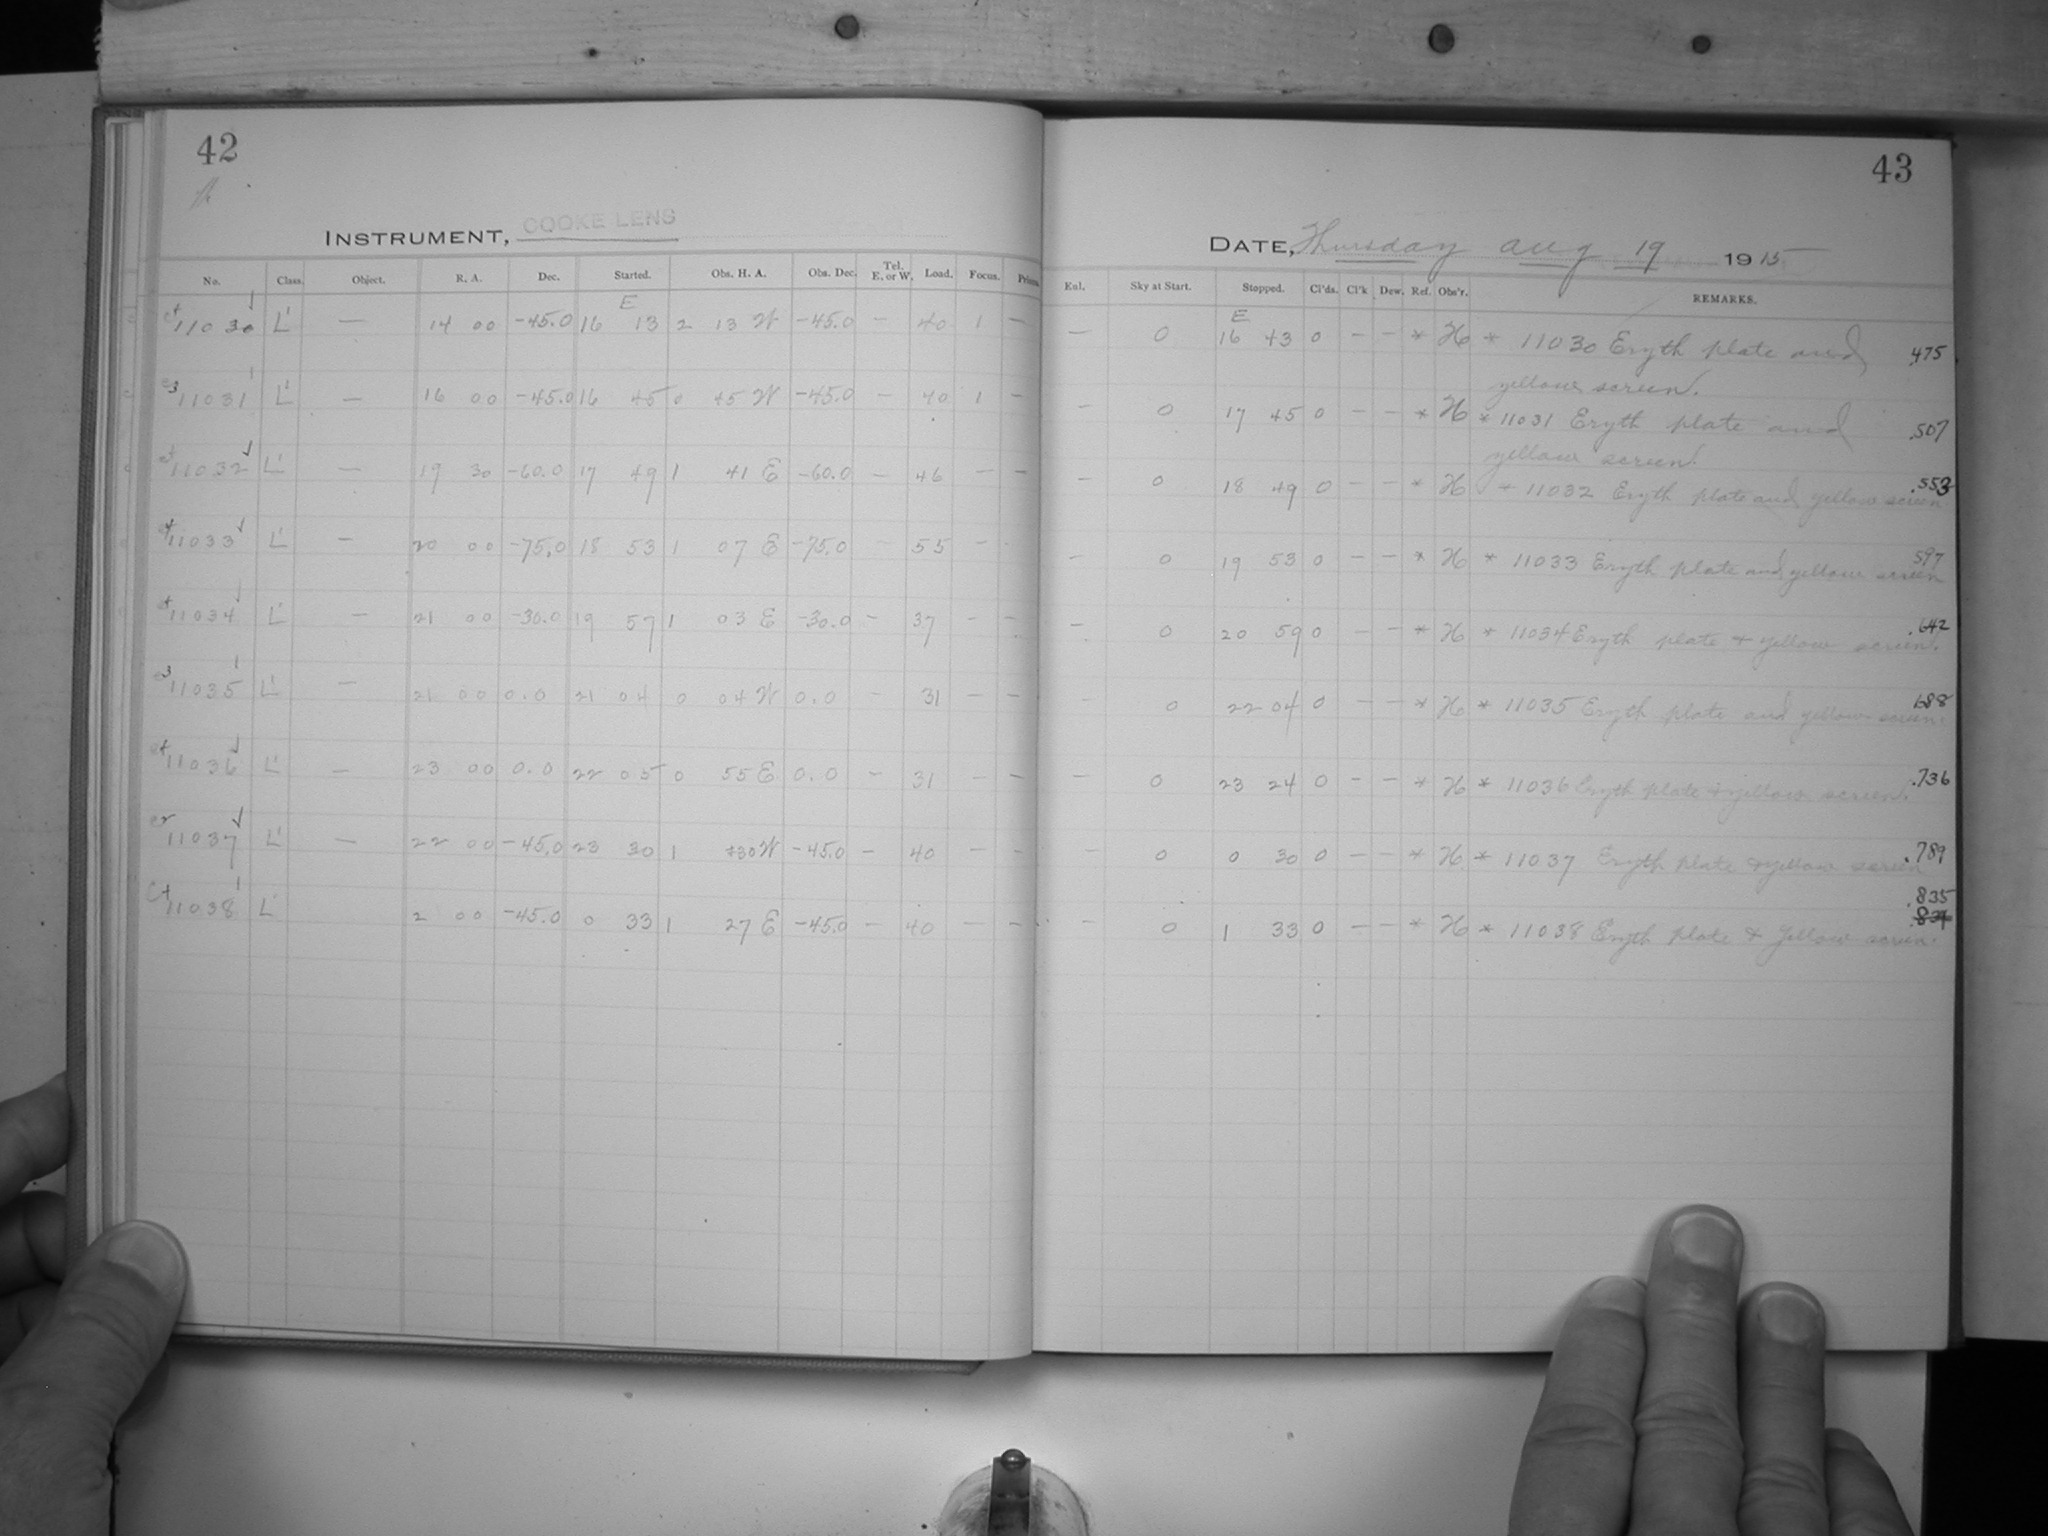 42
43
INSTRUMENT, COOKE LENS
DATE, Thursday Aug 19 1915
No. Class. Object. R. A. Dec. Started. Obs. H. A. Obs. Dec. Tel. E. or W. Load. Focus. Prisms
Enl. Sky at Start. Stopped. Cl'ds. Cl'k Dew. Ref. Obs'r. REMARKS.
E
E
11030 L' — 14 00 -45.0 16 13 2 13 W -45.0 — 40 1 — — 0 16 43 0 — — * H * 11030 Eryth plate and .475
yellow screen.
11031 L' — 16 00 -45.0 16 45 0 45 W -45.0 — 40 1 — — 0 17 45 0 — — * H * 11031 Eryth plate and .507
yellow screen.
11032 L' — 19 30 -60.0 17 49 1 41 E -60.0 — 46 — — — 0 18 49 0 — — * H * 11032 Eryth plate and yellow screen .553
11033 L' — 20 00 -75.0 18 53 1 07 E -75.0 — 55 — — 0 19 53 0 — — * H * 11033 Eryth plate and yellow screen 597
11034 L' — 21 00 -30.0 19 57 1 03 E -30.0 — 37 — — — 0 20 59 0 — — * H * 11034 Eryth plate + yellow screen. .642
11035 L' — 21 00 0.0 21 04 0 04 W 0.0 — 31 — — — 0 22 04 0 — — * H * 11035 Eryth plate and yellow screen. 688
11036 L' — 23 00 0.0 22 05 0 55 E 0.0 — 31 — — — 0 23 24 0 — — * H * 11036 Eryth plate & yellow screen. .736
11037 L' — 22 00 -45.0 23 30 1 30 W -45.0 — 40 — — — 0 0 30 0 — — * H * 11037 Eryth plate & yellow screen .789
11038 L' 2 00 -45.0 0 33 1 27 E -45.0 — 40 — — — 0 1 33 0 — — * H * 11038 Eryth plate & yellow screen. .835
.834